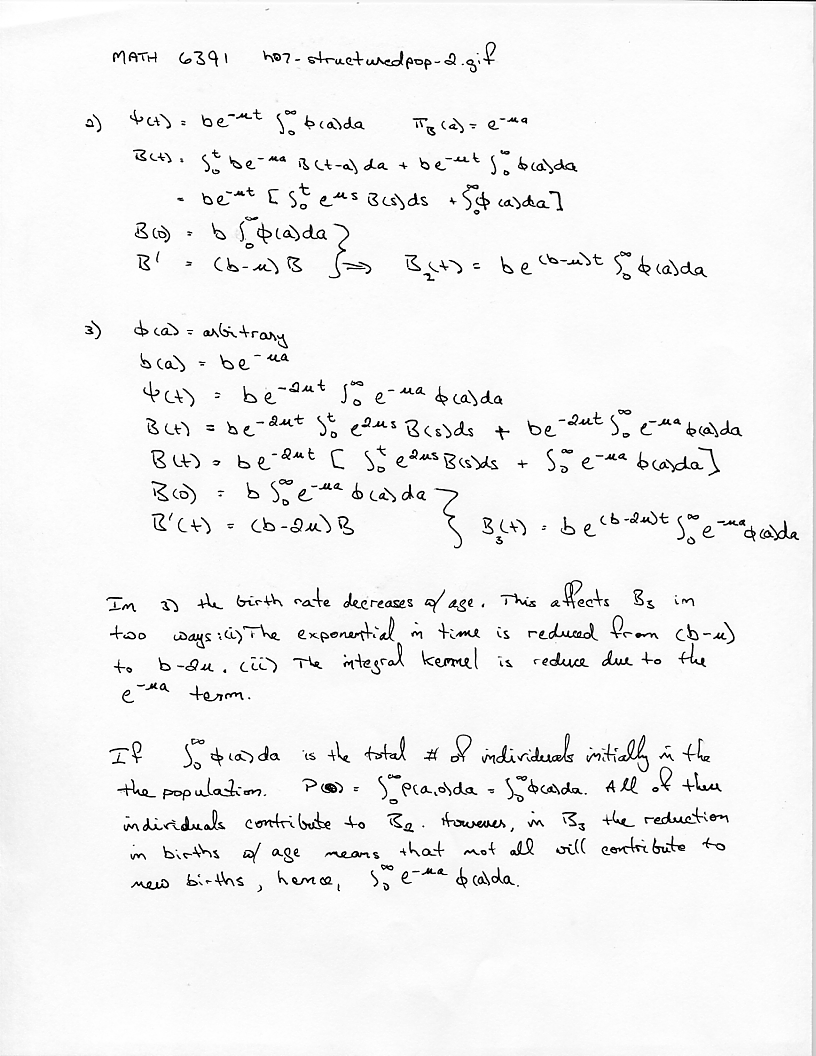 MATH 6391 h07-structuredpop-2.gif
2) ψ(t) = be^{-μt} ∫_0^∞ φ(a)da π_B(a) = e^{-μa}
B(t) = ∫_0^t be^{-μa} B(t-a)da + be^{-μt} ∫_0^∞ φ(a)da
= be^{-μt} [ ∫_0^t e^{μs} B(s)ds + ∫_0^∞ φ(a)da ]
B(0) = b ∫_0^∞ φ(a)da }
B' = (b-μ)B } ⇒ B_2(t) = be^{(b-μ)t} ∫_0^∞ φ(a)da
3) φ(a) = arbitrary
b(a) = be^{-μa}
ψ(t) = be^{-2μt} ∫_0^∞ e^{-μa} φ(a)da
B(t) = be^{-2μt} ∫_0^t e^{2μs} B(s)ds + be^{-2μt} ∫_0^∞ e^{-μa} φ(a)da
B(t) = be^{-2μt} [ ∫_0^t e^{2μs} B(s)ds + ∫_0^∞ e^{-μa} φ(a)da ]
B(0) = b ∫_0^∞ e^{-μa} φ(a)da }
B'(t) = (b-2μ)B } B_3(t) = be^{(b-2μ)t} ∫_0^∞ e^{-μa} φ(a)da
In 3) the birth rate decreases w/ age. This affects B_3 in
two ways: (i) The exponential in time is reduced from (b-μ)
to b-2μ. (ii) The integral kernel is reduce due to the
e^{-μa} term.
If ∫_0^∞ φ(a)da is the total # of individuals initially in the
the population. P(0) = ∫_0^∞ ρ(a,0)da = ∫_0^∞ φ(a)da. All of these
individuals contribute to B_2. However, in B_3 the reduction
in births w/ age means that not all will contribute to
new births, hence, ∫_0^∞ e^{-μa} φ(a)da.